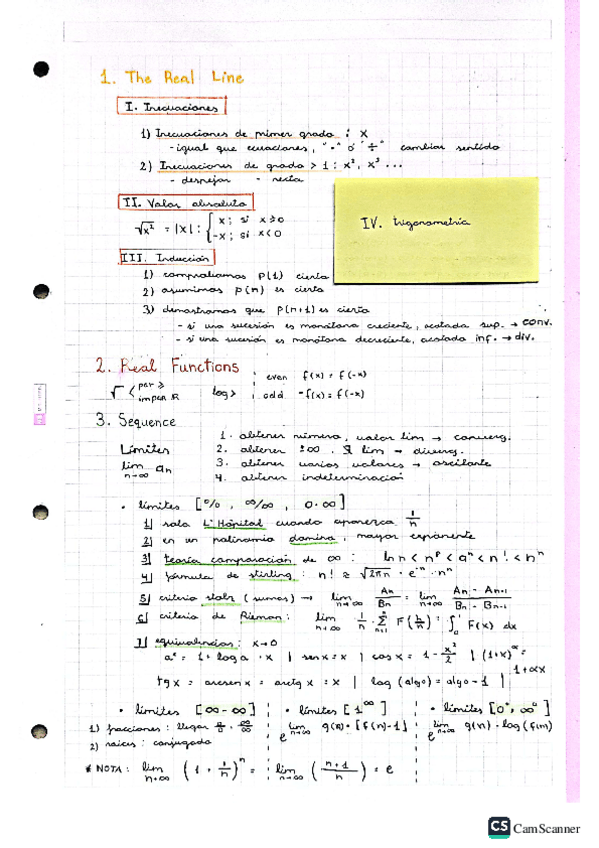 1. The Real Line
I. Inecuaciones
1) Inecuaciones de primer grado : x
- igual que ecuaciones, "·" o "÷" cambiar sentido
2) Inecuaciones de grado > 1 : x², x³ ...
- despejar - recta
II. Valor absoluto
√x² = |x| : { x ; si x ≥ 0
-x ; si x < 0
IV. trigonometría
III. Inducción
1) comprobamos P(1) cierta
2) asumimos P(n) es cierta
3) demostramos que P(n+1) es cierto
- si una sucesión es monótona creciente, acotada sup. → conv.
- si una sucesión es monótona decreciente, acotada inf. → div.
2. Real Functions
√ < par ≥
impar ℝ
log >
even f(x) = f(-x)
odd -f(x) = f(-x)
3. Sequence
Límites
lim n→∞ an
1. obtener número, valor lim → converg.
2. obtener ±∞. ∄ lim → diverg.
3. obtener varios valores → oscilante
4. obtener indeterminación
• límites [0/0, ∞/∞, 0·∞]
1) solo L'Hôpital cuando aparezca 1/n
2) en un polinomio domina, mayor exponente
3) teoría comparación de ∞ : ln n < n^p < a^n < n! < n^n
4) fórmula de stirling : n! ≈ √2πn · e^-n · n^n
5) criterio stolz (sumas) → lim n→∞ An/Bn = lim n→∞ (An - An-1)/(Bn - Bn-1)
6) criterio de Rieman : lim n→∞ 1/n · Σ n=1 ^n F(k/n) = ∫₀¹ F(x) dx
7) equivalencias : x→0
a^x = 1 + log a · x | sen x = x | cos x = 1 - x²/2 | (1+x)^α = 1+αx
tg x = arcsen x = arctg x = x | log (algo) = algo - 1 |
• límites [∞-∞]
1) fracciones : llegar 0/0 · ∞/∞
2) raíces : conjugado
• límites [1^∞]
e^ lim n→∞ g(n) · [f(n)-1]
• límites [0°, ∞°]
e^ lim n→∞ g(n) · log (f(n))
* NOTA : lim n→∞ (1 + 1/n)^n = lim n→∞ (n+1/n) = e
CS CamScanner